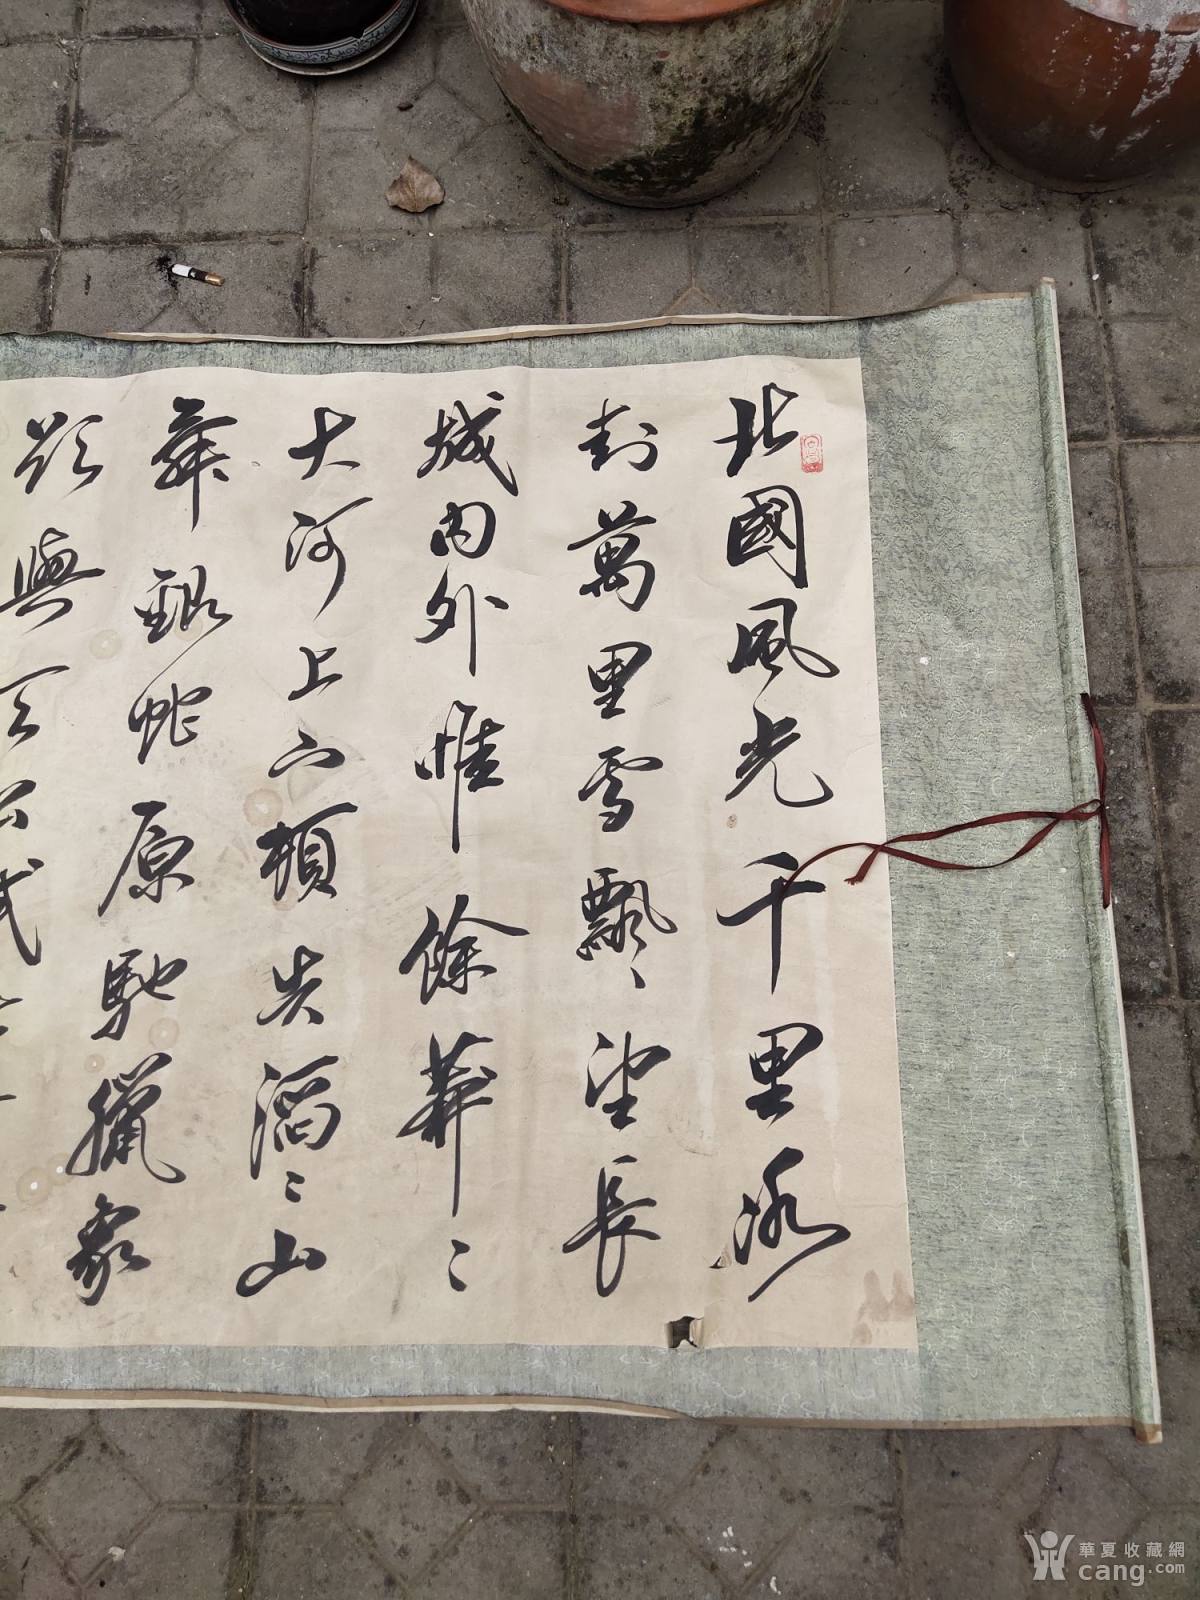 北國風光千里冰
封萬里雪飄〻望長
城內外惟餘莽〻
大河上下頓失滔〻山
舞銀蛇原馳獵象
欲與天公試
華夏收藏網
cang.com